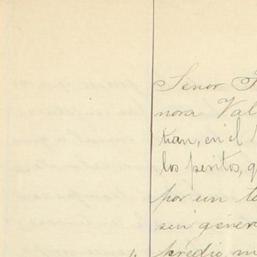 Señor
nora Val
tran, en el
los peritos, q
por un t
sin géner
predio m